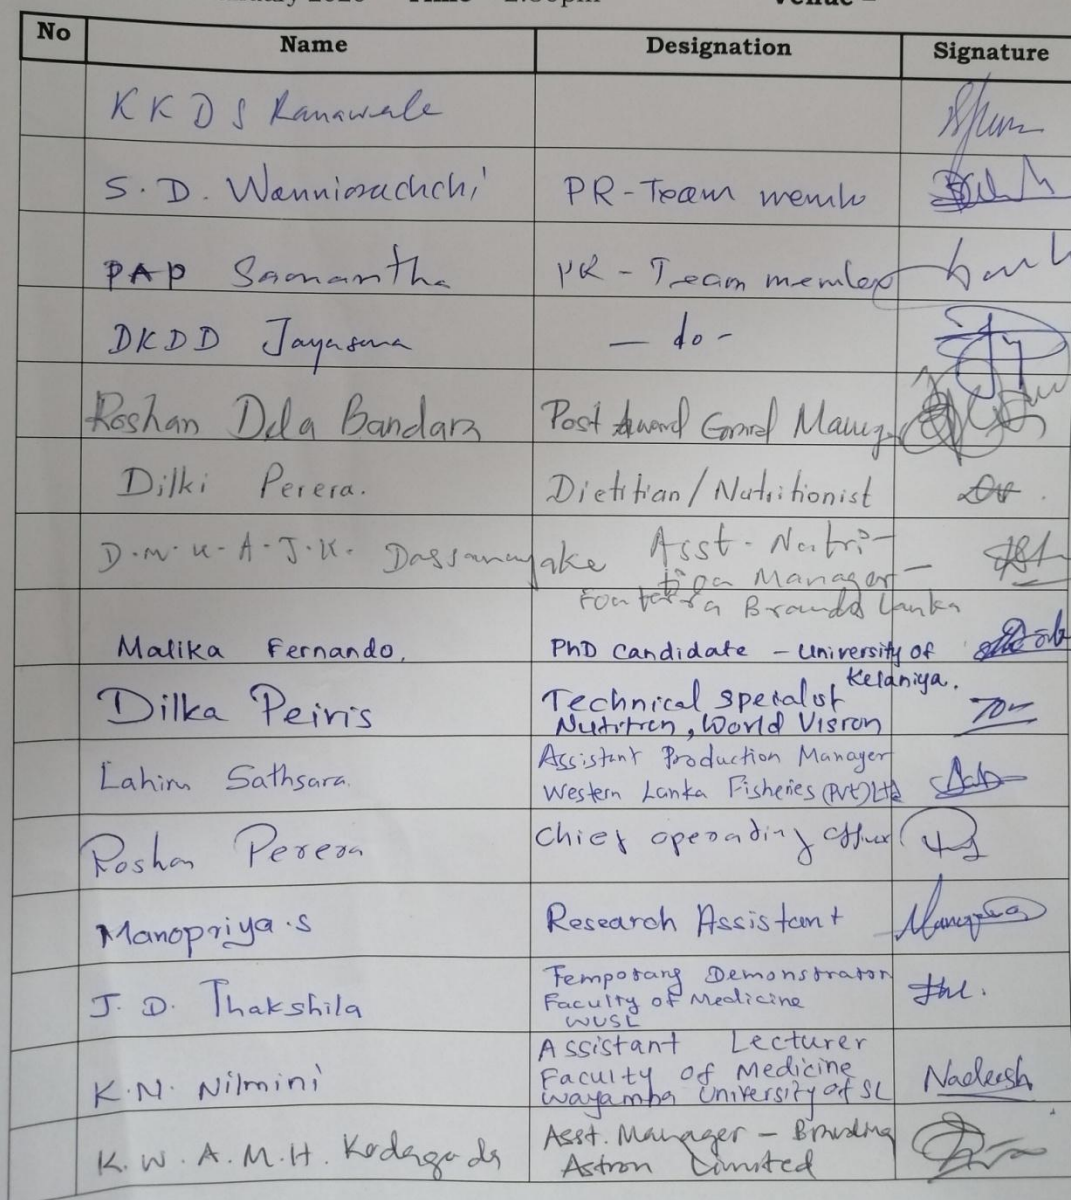 No Name Designation Signature
K K D S Ranawale
S. D. Wanniarachchi PR-Team membe
PAP Samantha PR - Team member
DKDD Jayasena — do -
Roshan Dela Bandara Post Award Manager
Dilki Perera. Dietitian/Nutritionist
D.M.K.A.J.K. Dassanayake Asst - Nutri-
tion Manager -
Fonterra Brands Lanka
Malika Fernando, PhD candidate - University of
Kelaniya.
Dilka Peiris Technical Specialist
Nutrition, World Vision
Lahiru Sathsara. Assistant Production Manager
Western Lanka Fisheries (Pvt) Ltd
Roshan Perera Chief operating officer
Manopriya.S Research Assistant
J. D. Thakshila Temporary Demonstrator
Faculty of Medicine
WUSL
K.N. Nilmini Assistant Lecturer
Faculty of Medicine
Wayamba University of SL Nadeesh
K.W.A.M.H. Kodagoda Asst. Manager - Branding
Astron Limited